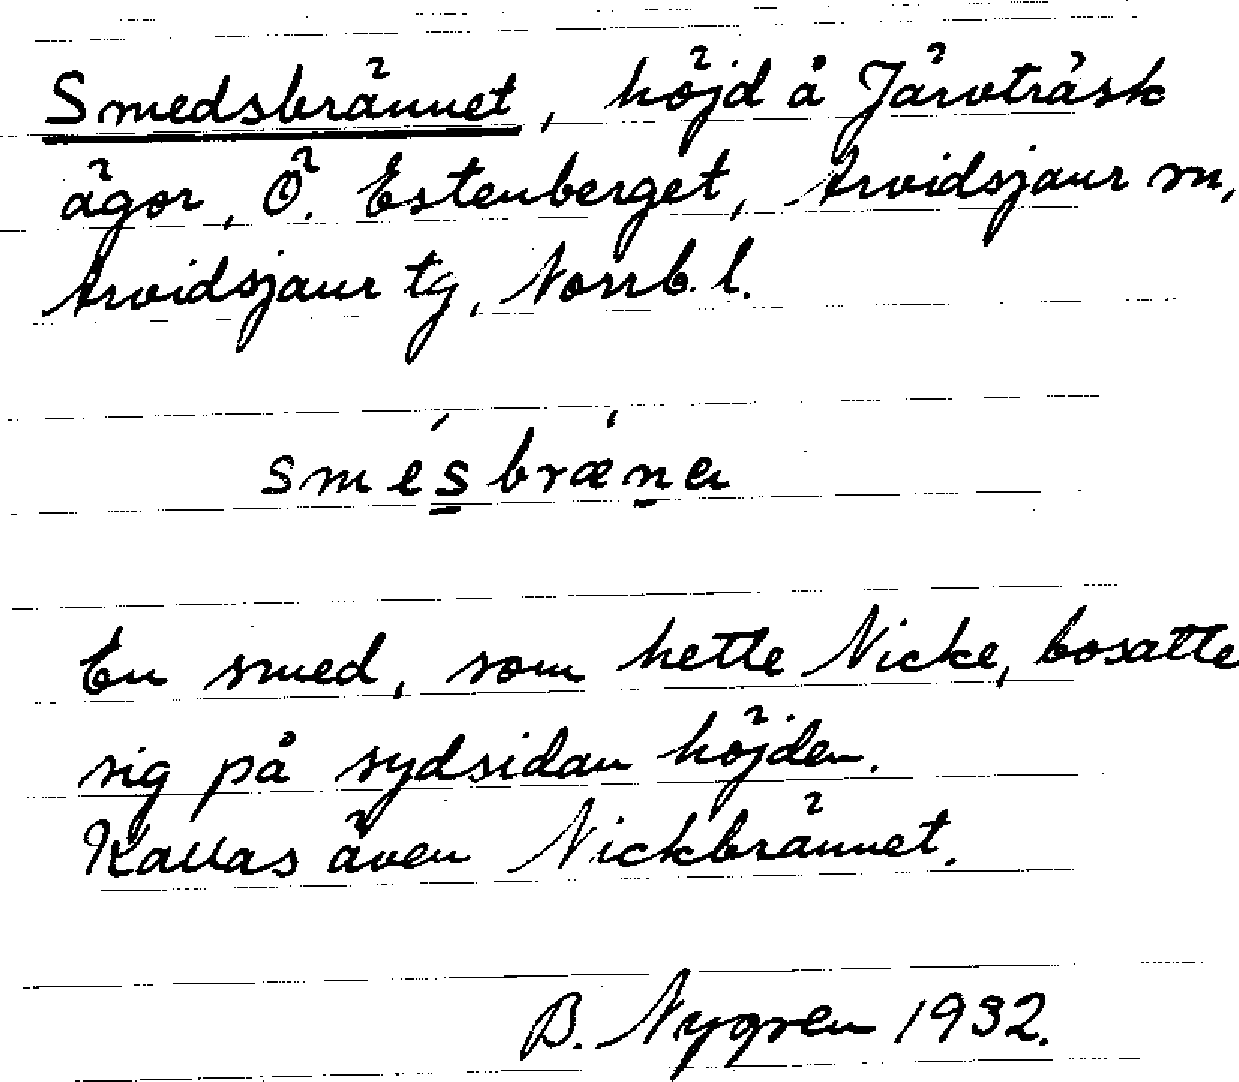 Smedsbrännet, höjd å Järvträsk
ägor, Ö. Estenberget, Arvidsjaur sn,
Arvidsjaur tg, Norrb. l.
smésbrǽna
En smed, som hette Nicke, bosatte
sig på sydsidan höjden.
Kallas även Nickbrännet.
B. Nygren 1932.